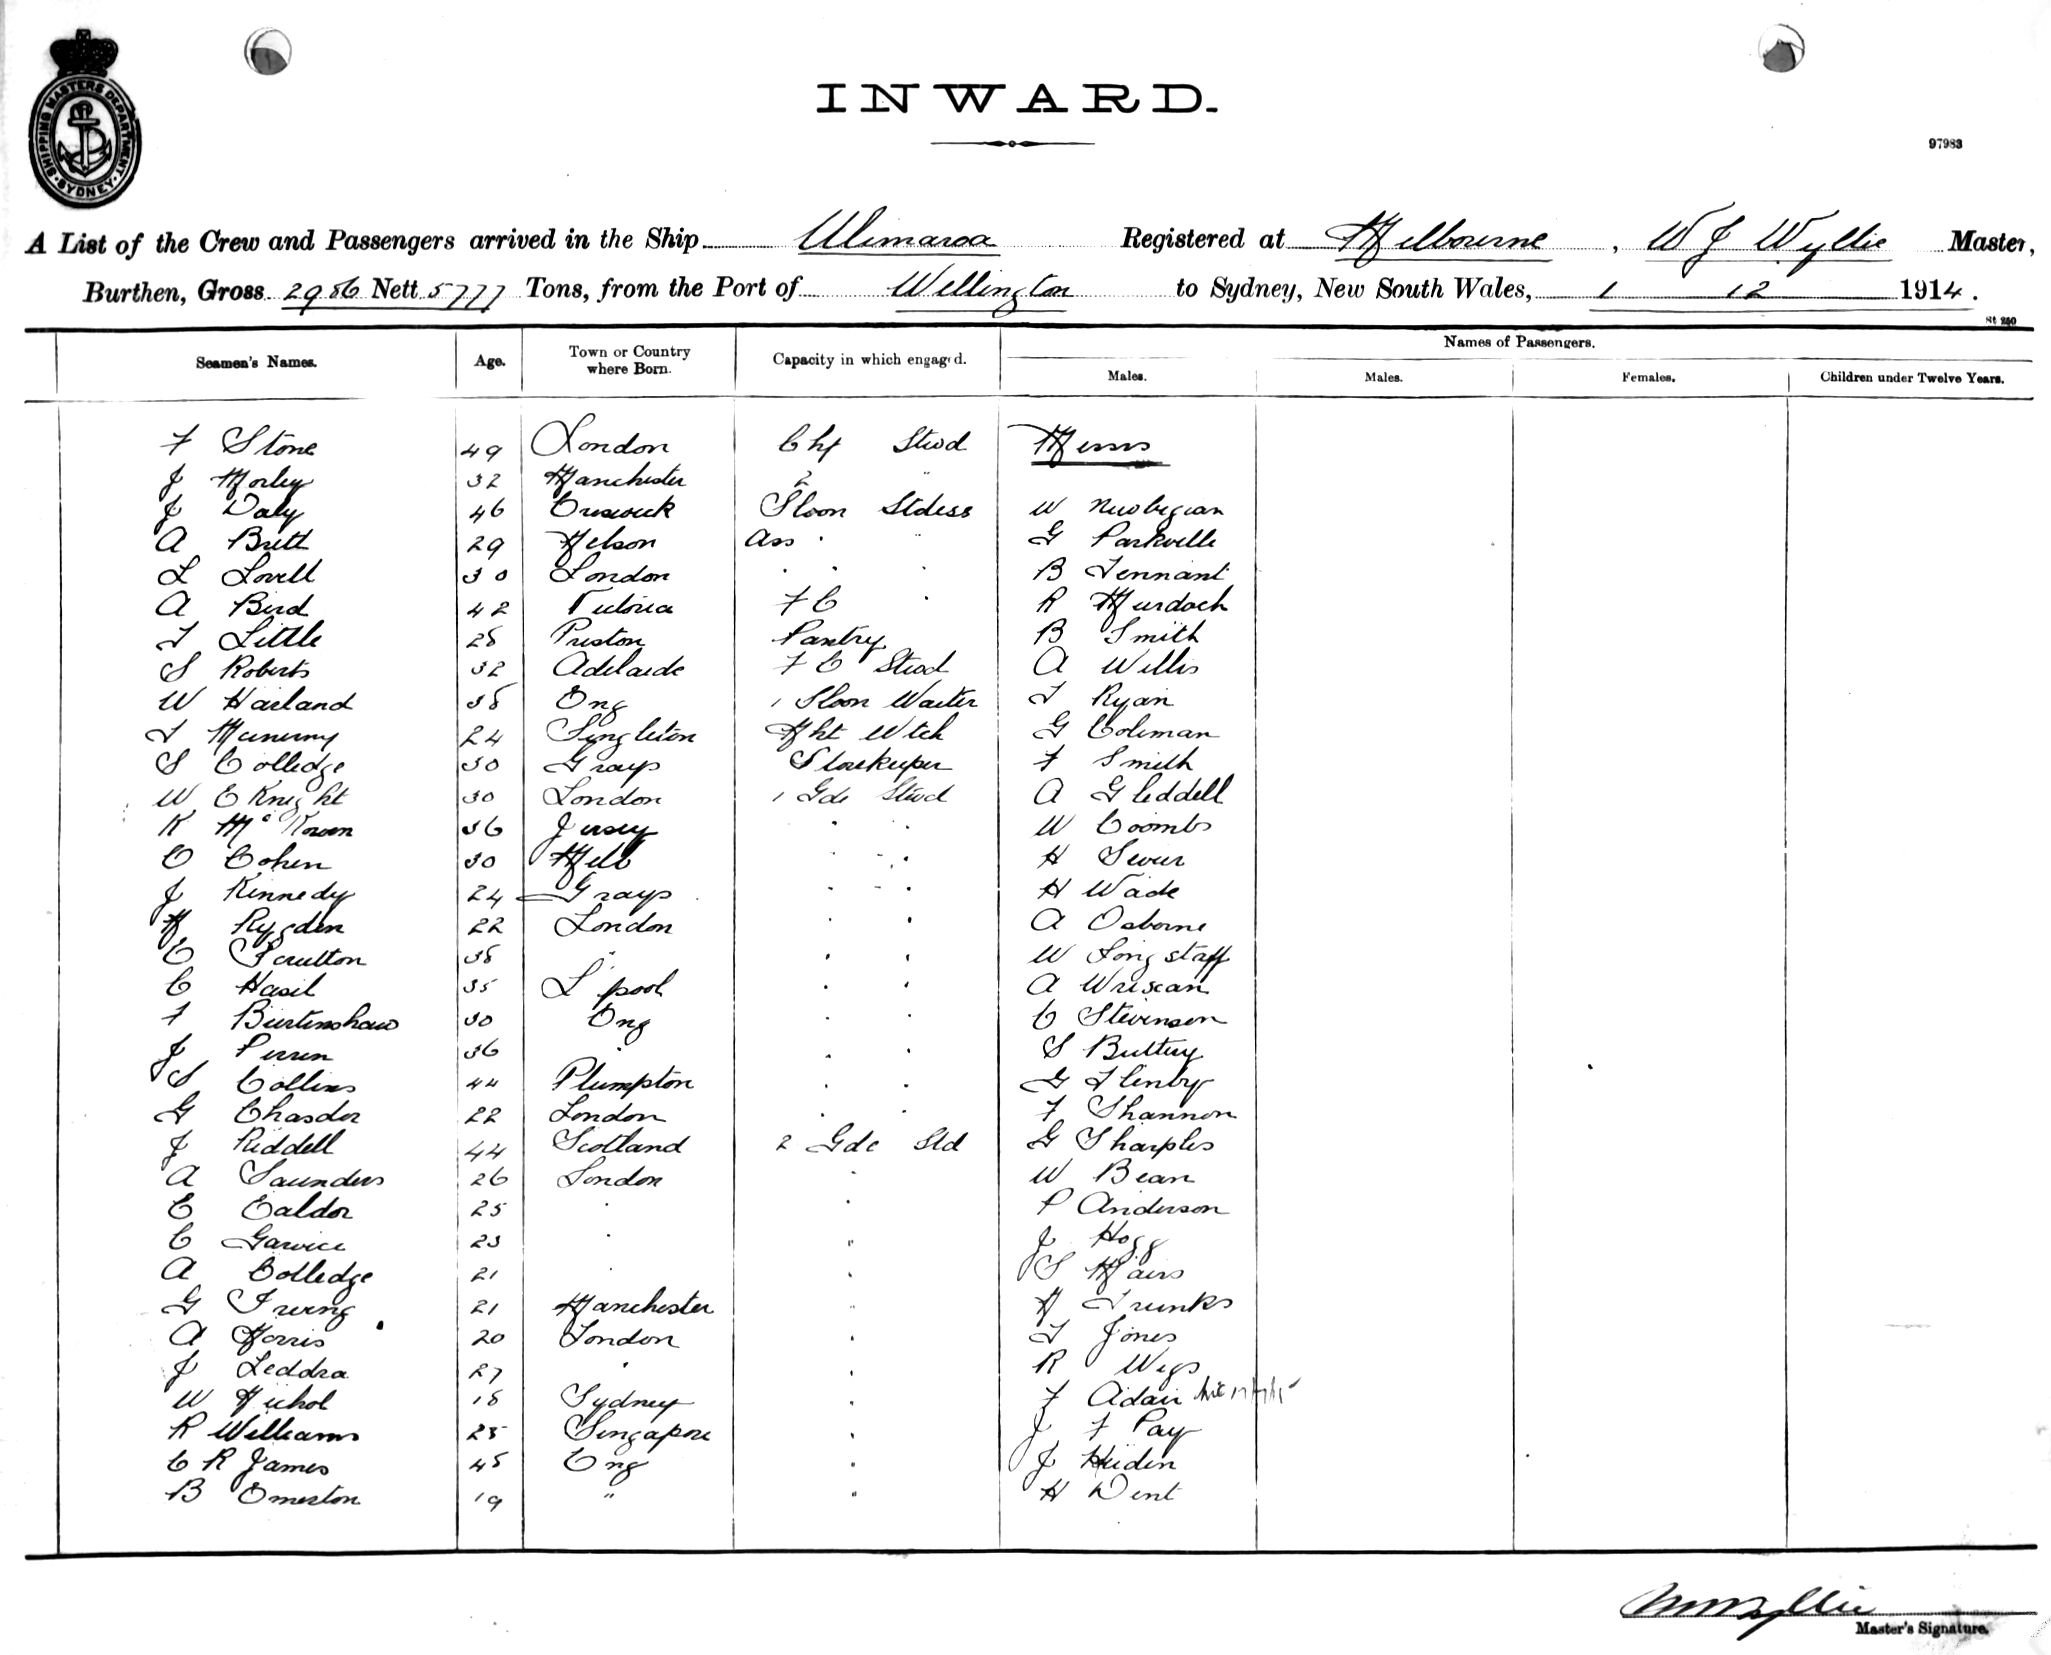 SHIPPING MASTERS DEPARTMENT SYDNEY
INWARD.
97983
A List of the Crew and Passengers arrived in the Ship Ulimaroa Registered at Melbourne, W J Wyllie Master,
Burthen, Gross 2986 Nett 5777 Tons, from the Port of Wellington to Sydney, New South Wales, 1 12 1914.
St 250
Names of Passengers.
Seamen's Names. Age. Town or Country where Born. Capacity in which engaged. Males. Males. Females. Children under Twelve Years.
F Stone 49 London Chf Stwd Messrs
J Morley 32 Manchester 2 "
J Daly 46 Creswick Sloon Stdess W Newbegian
A Brett 29 Nelson Ass " " G Parkville
L Lovell 30 London " " " B Tennant
A Bird 42 Victoria F C " R Murdoch
T Little 28 Preston Pantry B Smith
S Roberts 32 Adelaide F C Stwd A Willis
W Harland 38 Eng 1 Sloon Waiter T Ryan
T 24 Singleton Nht Wtch G Coleman
S Colledge 30 Grays Storekeeper F Smith
W E Knight 30 London 1 Gde Stwd A Gleddell
K McKowen 36 Jersey " " W Coombs
C Cohen 30 Melb " " H
J Kennedy 24 Grays " " H Wade
H Rygden 22 London " " A Osborne
C Scrutton 38 " " " W Longstaff
C Hasil 35 L'pool " " A
F Burtenshaw 30 Eng " " C Stevenson
J Perren 36 " " " S Buttery
S Collins 44 Plumpton " " G Flenby
G Chasdor 22 London " " F Shannon
J Riddell 44 Scotland 2 Gde Std G Sharples
A Saunders 26 London " W Bean
E Caldor 25 " " P Anderson
C Garvice 23 " " J Hogg
A Colledge 21 " " S Mairs
G Irving 21 Manchester " H Trunks
A Norris 20 London " T Jones
J Leddra 27 " " R Wegs
W Nichol 18 Sydney " F Adair
R Williams 25 Singapore " J F Pay
C R James 45 Eng " J Heiden
B Omerton 19 " " H Dent
Master's Signature.